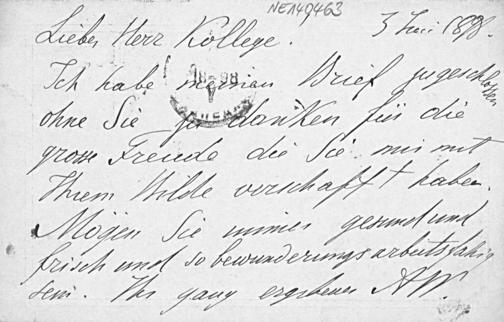 NE149463
3 Juni 1898.
Lieber Herr Kollege.
Ich habe meinen Brief zugeschlossen
ohne Sie zu danken für die
grosse Freude die Sie mir mit
Ihrem Bilde verschafft haben.
Mögen Sie immer gesund und
frisch und so bewunderungs arbeitsfähig
sein. Ihr ganz ergebener AW